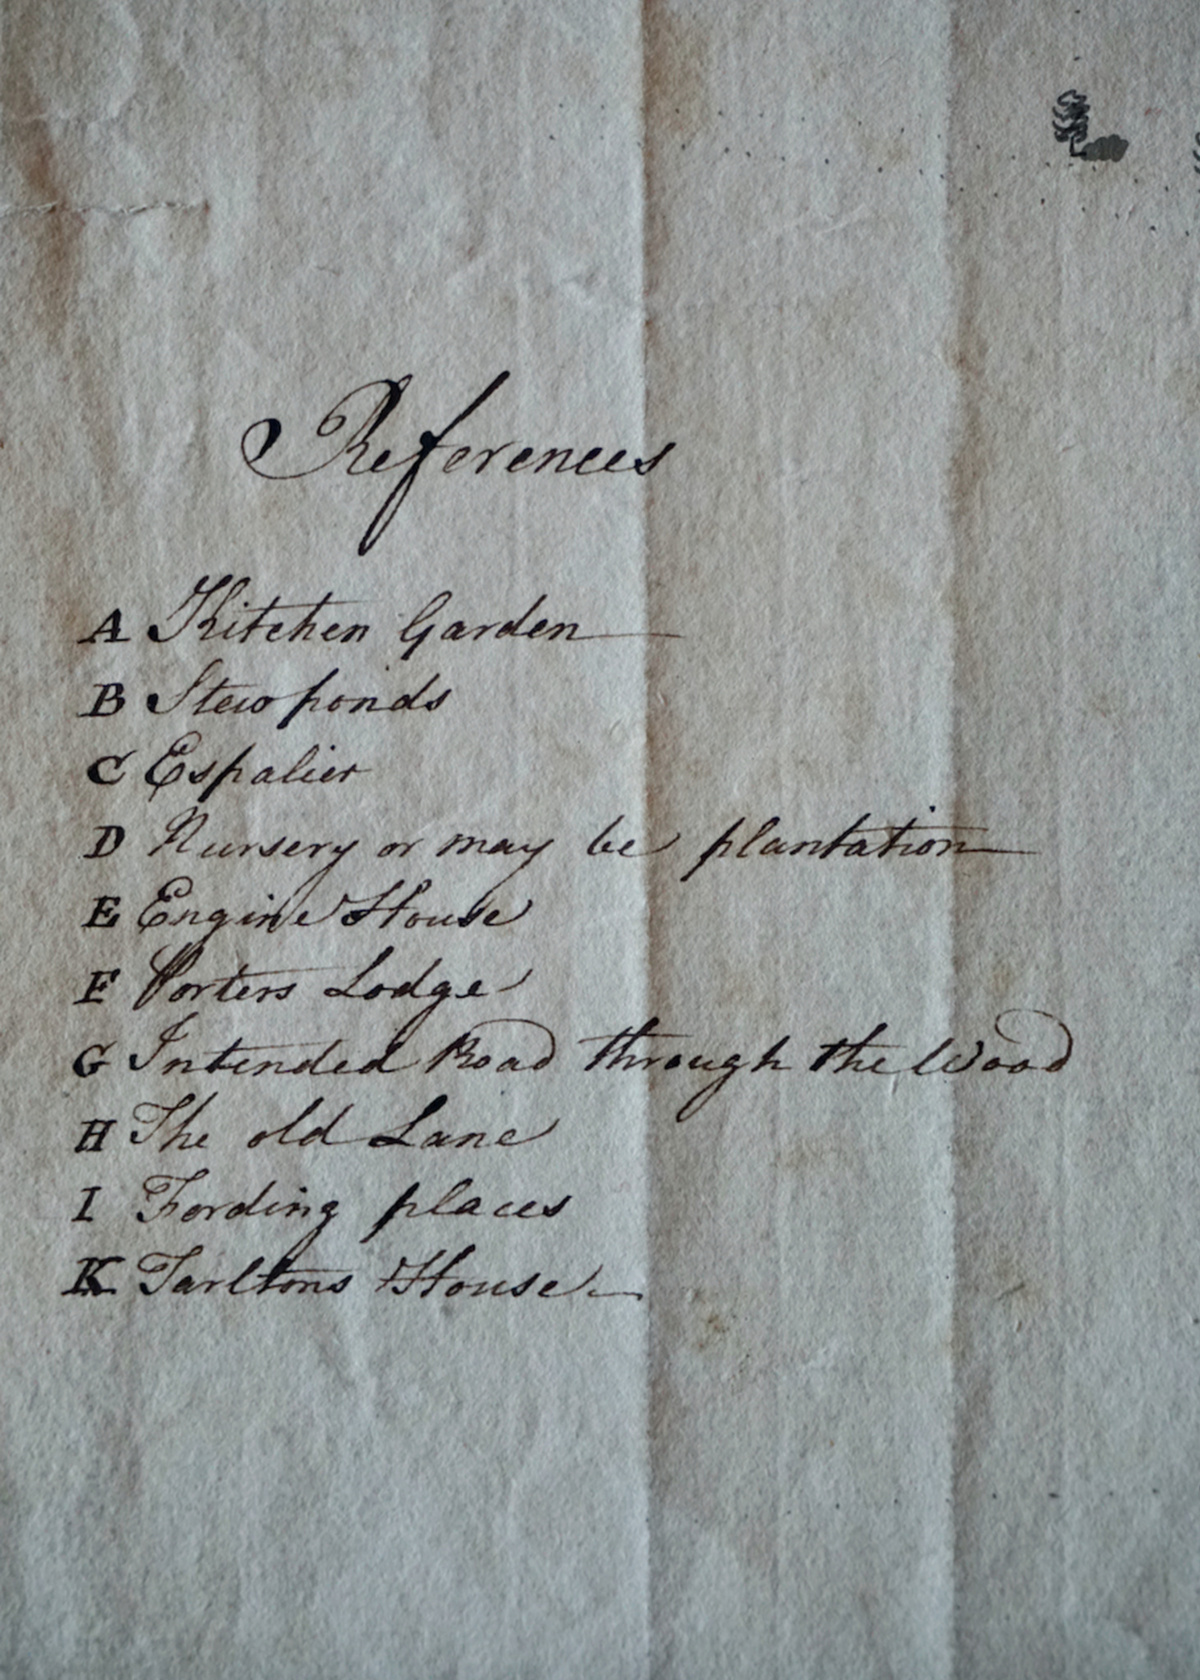 References
A Kitchen Garden
B Stew ponds
C Espalier
D Nursery or may be plantation
E Engine House
F Porters Lodge
G Intended Road through the Wood
H The old Lane
I Fording places
K Tarltons House